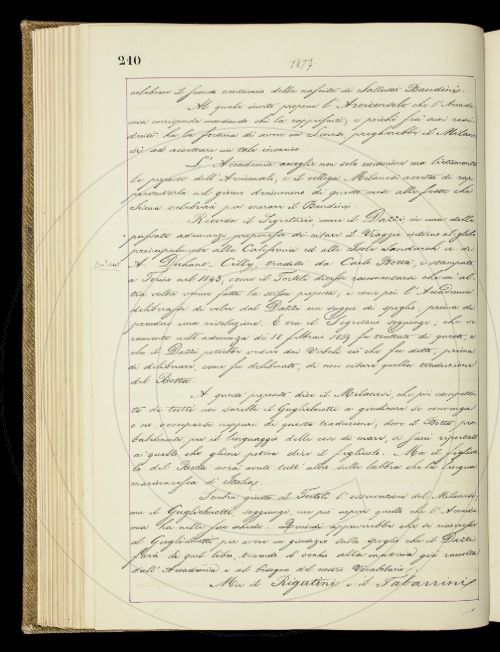 240
1877
celebrare il secondo centenario della nascita di Sallustio Bandini.
Al quale invito propone l'Arciconsolo che l'Accade-
mia corrisponda mandando chi la rappresenti; e poichè fra i suoi resi-
denti ha la fortuna di avere un Senese, pregherebbe il Milane-
si ad accettare un tale incarico.
L'Accademia accoglie non solo concorde ma lietamente
la proposta dell'Arciconsolo, e il collega Milanesi accetta di rap-
presentarla nel giorno di questo mese alle feste che
Siena celebrerà per onorare il Bandini.
Ricorda il Segretario come il Dazzi in una delle
passate adunanze proponesse di citare il Viaggio intorno al globo
principalmente alla California ed alle Isole Sandwich di
A. Duhaut-Cilly, tradotto da Carlo Botta, e stampato
a Torino nel 1843, come il Tortoli dicesse rammentarsi che un'al-
tra volta venne fatta la stessa proposta, e come poi l'Accademia
deliberasse di voler dal Dazzi un saggio di spoglio, prima di
prendere una risoluzione. E ora il Segretario soggiunge, che ve-
ramente nell'adunanza di 18 febbraio 1869 fu trattato di questo, e
che il Dazzi potrebbe vedere dai Verbali ciò che fu detto, prima
di deliberare, come fu deliberato, di non citare quella traduzione
del Botta.
A questo proposito dice il Milanesi che più competen-
te di tutti noi sarebbe il Guglielmotti a giudicare se convenga
o no occuparsi neppure di questa traduzione, dove il Botta pro-
babilmente per il linguaggio delle cose di mare, si sarà riportato
a quello che gliene poteva dire il figliuolo. Ma il figliuo-
lo del Botta avrà avuto tutt'altro sulle labbra che la lingua
marinaresca d'Italia.
Sembra giusta al Tortoli l'osservazione del Milanesi;
ma il Guglielmotti, soggiunge, non può sapere quello che l'Accade-
mia ha nelle sue schede. Quindi approverebbe che si scrivesse
al Guglielmotti per avere un giudizio sullo spoglio che il Dazzi
farà di quel libro, tenendo d'occhio alla materia già raccolta
dall'Accademia e al bisogno del nostro Vocabolario.
Ma il Rigutini e il Tabarrini